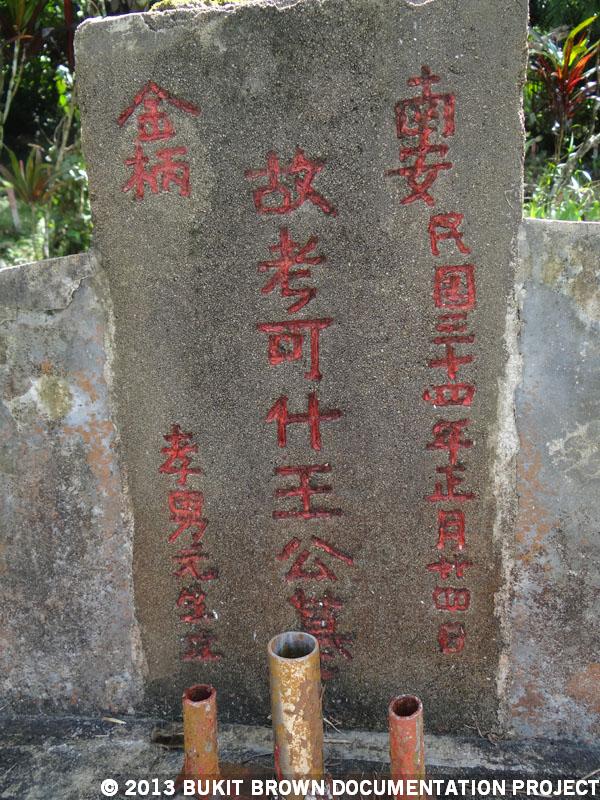 南安
民国三十四年正月廿四日
故考可什王公墓
金柄
孝男元生立
© 2013 BUKIT BROWN DOCUMENTATION PROJECT